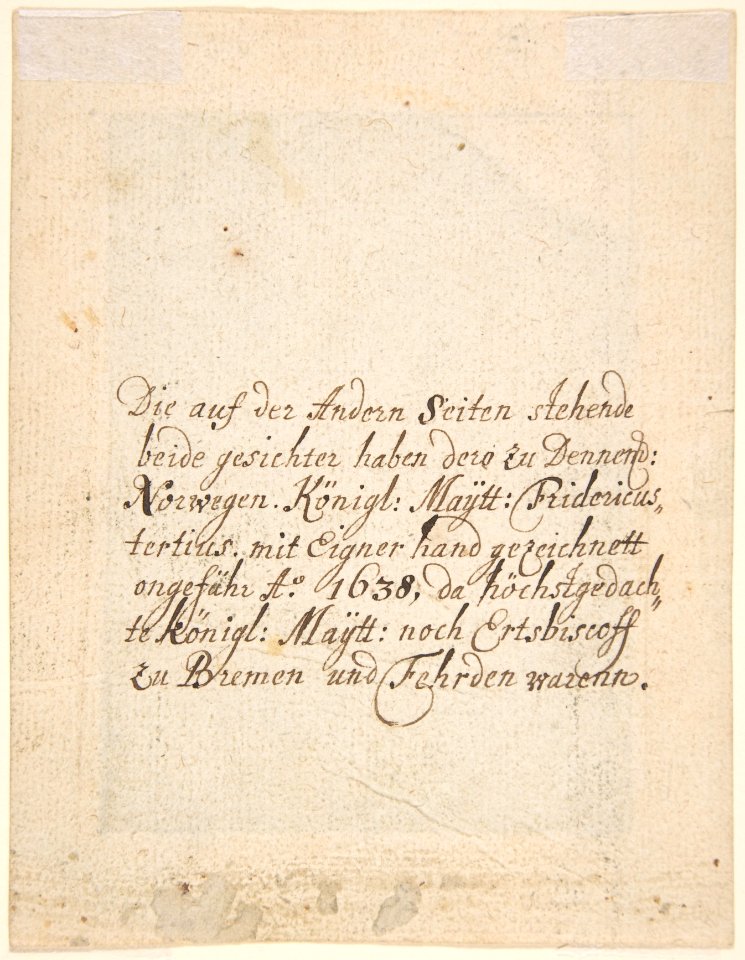 Die auf der Andern Seiten stehende
beide gesichter haben dero zu Dennem:
Norwegen. Königl: Maÿtt: Fridericus„
tertius. mit Eigner hand gezeichnett
ongefähr Aº 1638, da höchstgedach„
te königl: Maÿtt: noch Ertsbiscoff
zu Bremen und Fehrden warenn.